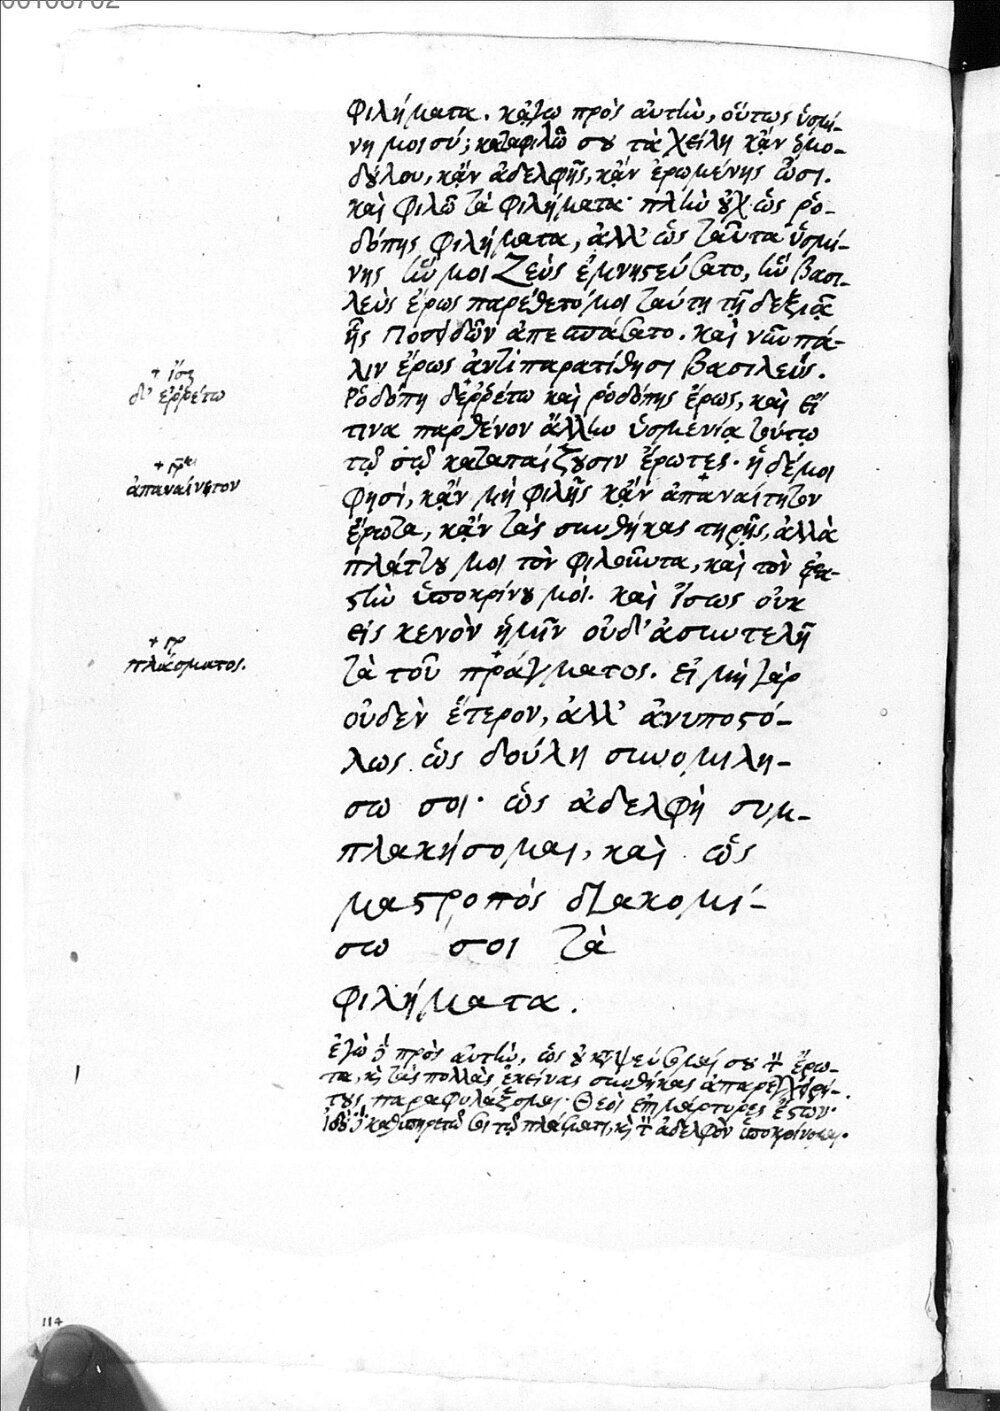 φιλήματα. κἀγὼ πρὸς αὐτὴν, οὕτως ὑσμί-
νη μοι σύ; καταφιλῶ σου τὰ χείλη κᾂν ὁμο-
δούλου, κᾂν ἀδελφῆς, κᾂν ἐρωμένης ὦσι.
καὶ φιλῶ τὰ φιλήματα· πλὴν οὐχ ὡς ῥο-
δόπης φιλήματα, ἀλλ' ὡς ταῦτα ὑσμί-
νης ἥν μοι Ζεὺς ἐμνηστεύσατο, ἣν βασι-
λεὺς ἔρως παρέθετό μοι ταύτη τῆ δεξιᾷ
ἧς Ποσειδῶν ἀπεσπάσατο. καὶ νῦν πά-
λιν ἔρως ἀντιπαρατίθησι βασιλεύς.
Ῥοδόπη δ' ἐρρέτω καὶ ῥοδόπης ἔρως, καὶ εἴ
τινα παρθένον ἄλλην ὑσμινία τούτω
τῶ σῶ καταπαίζουσιν ἔρωτες· ἡ δέ μοι
φησὶ, κᾂν μὴ φιλῆς κᾂν ἀπαναίτητον
ἔρωτα, κᾂν τὰς συνθήκας τηρῆς, ἀλλὰ
πλάττου μοι τὸν φιλοῦντα, καὶ τὸν ἐρα-
στὴν ὑποκρίνου μοί. καὶ ἴσως οὐκ
εἰς κενὸν ἡμῖν οὐδ' ἀσυντελῆ
τὰ τοῦ πράγματος. εἰ μὴ γὰρ
οὐδὲν ἕτερον, ἀλλ' ἀνυποστό-
λως ὡς δούλη συνομιλή-
σω σοι· ὡς ἀδελφὴ συμ-
πλακήσομαι, καὶ ὡς
μαστροπὸς διακομί-
σω σοι τὰ
φιλήματα.
ἐγὼ δὲ πρὸς αὐτὴν, ὡς οὐ καταψεύσομαί σου τὸν ἔρω-
τα, καὶ τὰς πολλὰς ἐκείνας συνθήκας ἀπαρεγχειρή-
τους παραφυλάξομαι. Θεοὶ ἐπιμάρτυρες ἔστων.
ἰδοὺ δὲ καθυπηρετῶ σοι τῶ πλάσματι, καὶ τὸν ἀδελφὸν ὑποκρίνομαι.
+ ἴσως
δ' ἐρρέτω
+ γρ. καὶ
ἀπαναίνετον
+ γρ
πλάσματος.
114